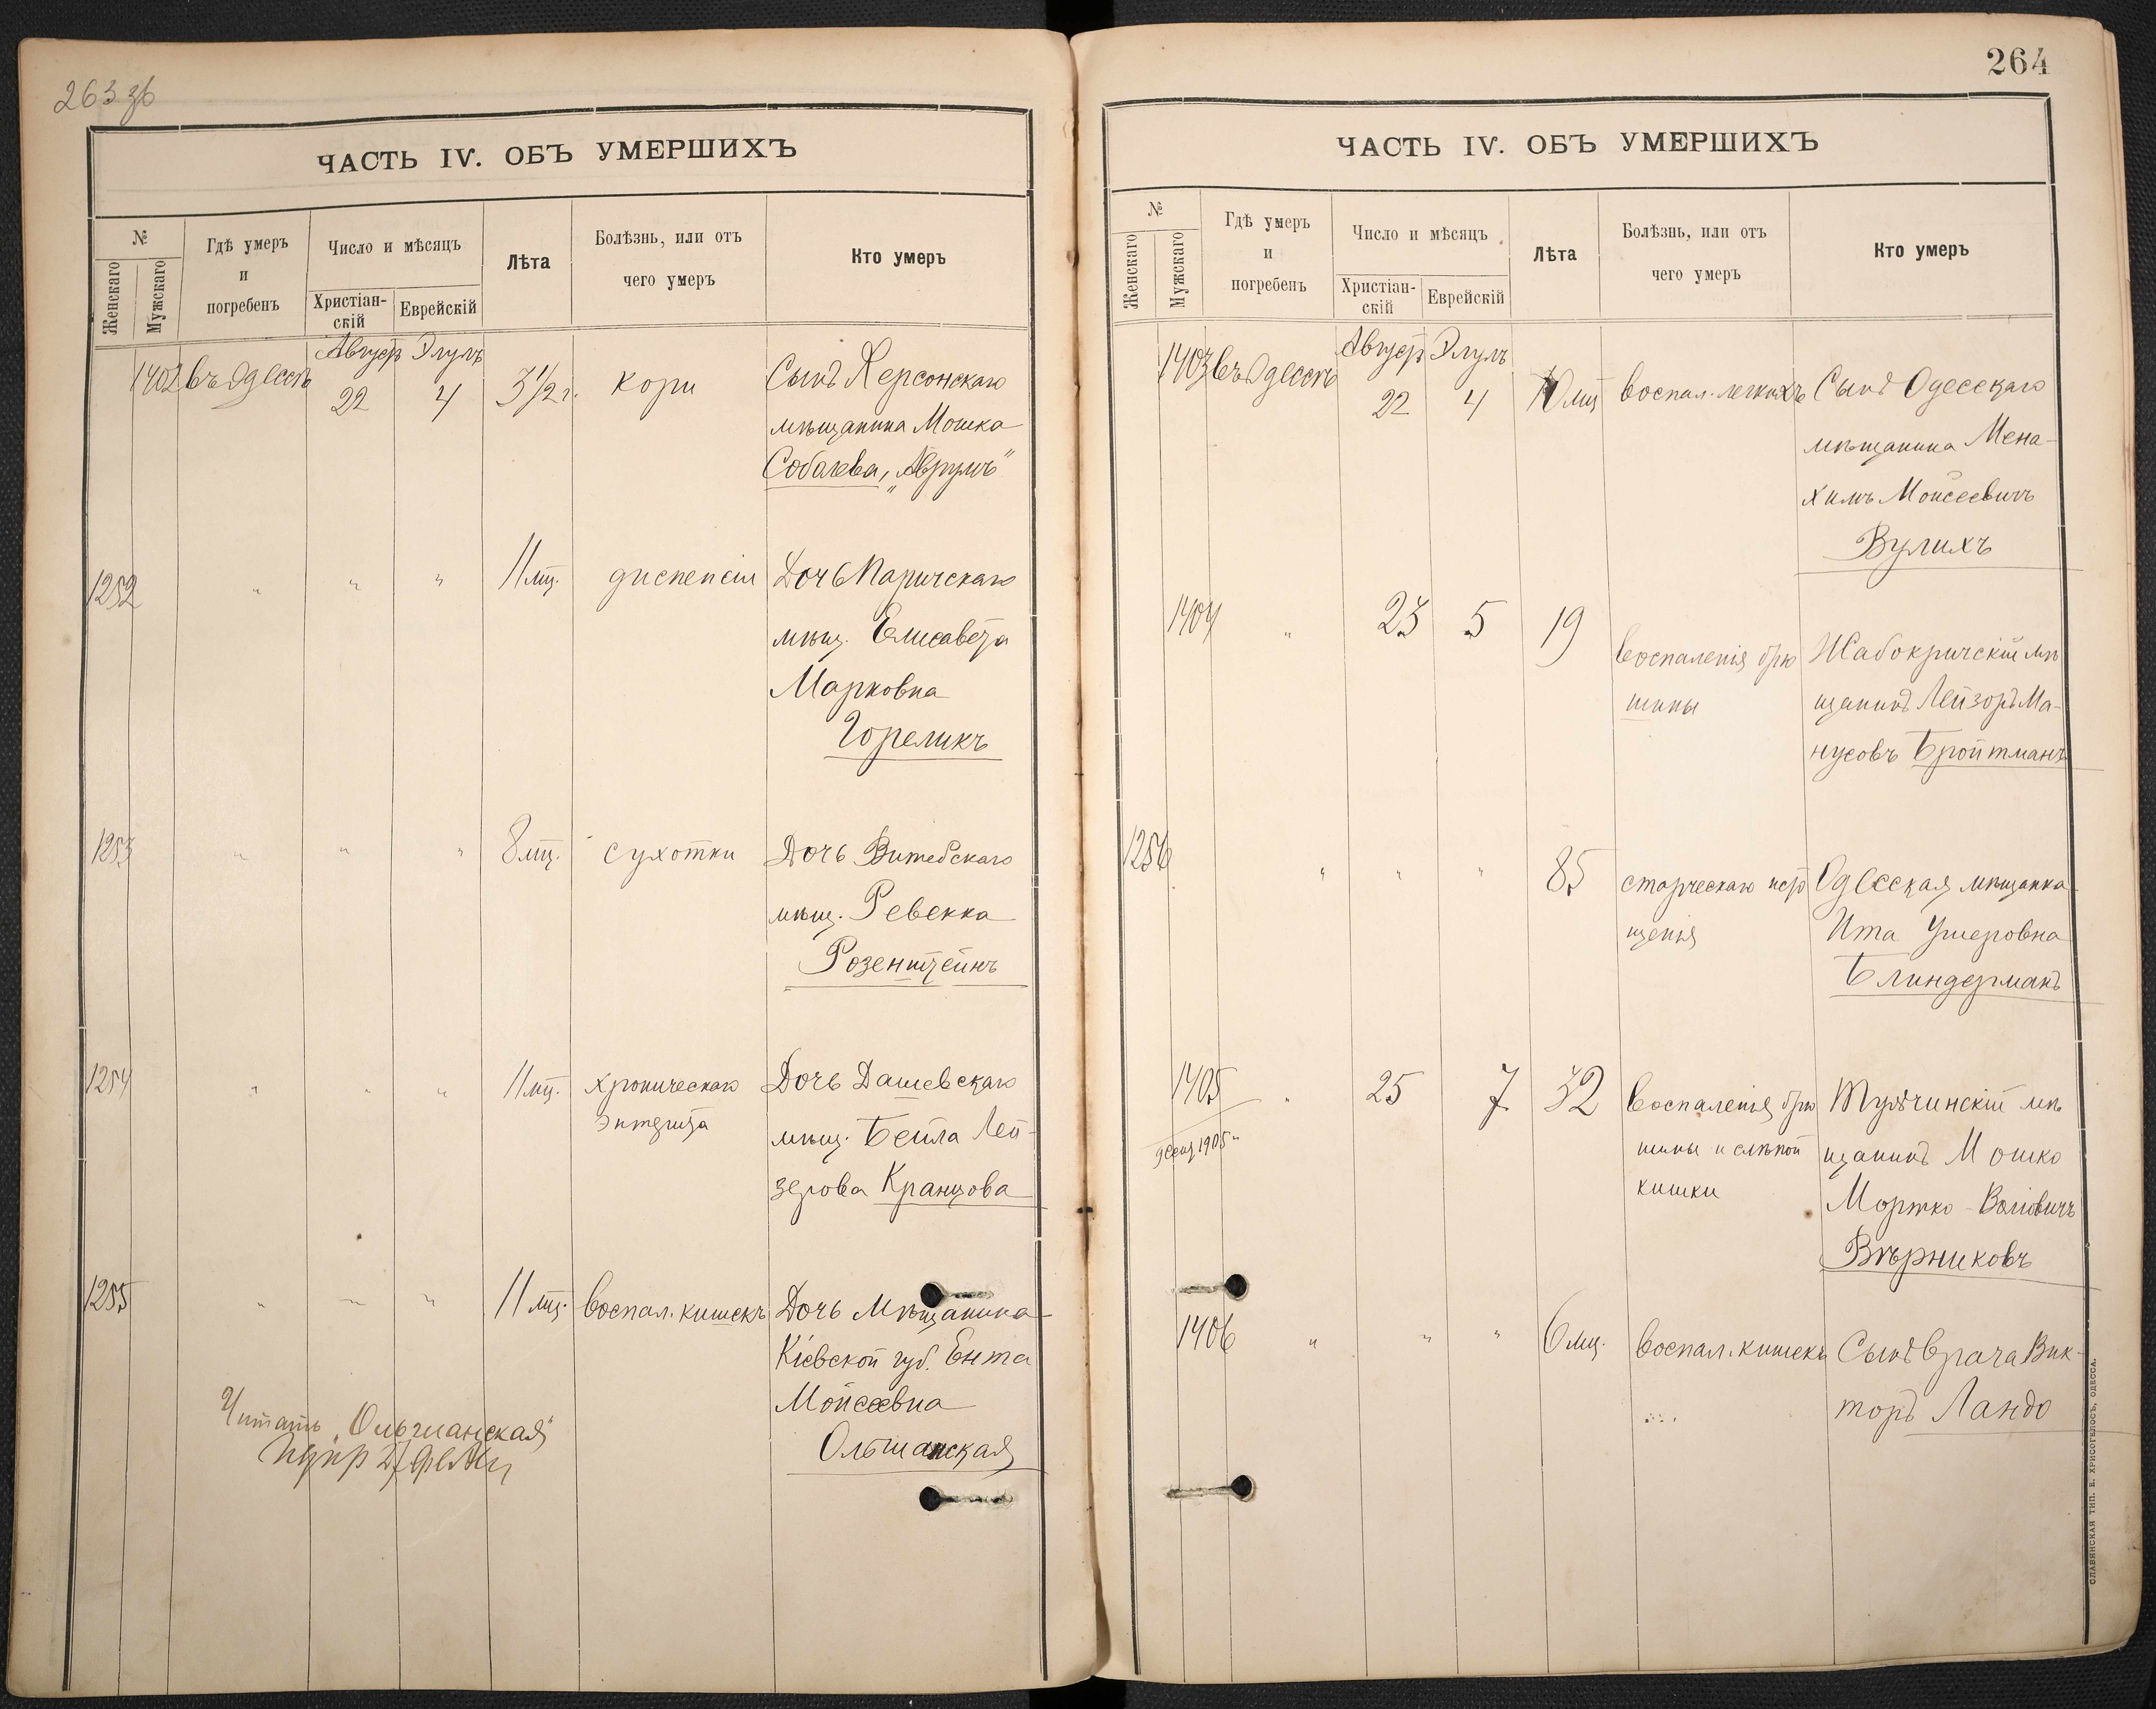 263 зв
ЧАСТЬ IV. ОБЪ УМЕРШИХЪ
№
Женскаго
Мужскаго
Гдѣ умеръ
и
погребенъ
Число и мѣсяцъ
Христіан-
скій
Еврейскій
Лѣта
Болѣзнь, или отъ
чего умеръ
Кто умеръ
Август Элулъ
1402 въ Одессѣ 22 4 3 1/2 г. кори Сынъ Херсонскаго
мѣщанина Мошка
Собалева, „Аврумъ"
1252 " " " 11 мц. диспепсіи Дочь Паричскаго
мѣщ. Елисавета
Марковна
Гореликъ
1253 " " " 8 мц. сухотки Дочь Витебскаго
мѣщ. Ревекка
Розенштейнъ
1254 " " " 11 мц. хроническаго Дочь Дашевскаго
энтерита
мѣщ. Бейла Лей-
зерова Кранцова
1255 " " " 11 мц. воспал. кишекъ Дочь Мѣщанина
Кіевской губ. Ента
Мойсеевна
Ольшанская
Читать „Ольшанская"
264
ЧАСТЬ IV. ОБЪ УМЕРШИХЪ
№
Женскаго
Мужскаго
Гдѣ умеръ
и
погребенъ
Число и мѣсяцъ
Христіан-
скій
Еврейскій
Лѣта
Болѣзнь, или отъ
чего умеръ
Кто умеръ
Август Элулъ
1403 въ Одессѣ 22 4 10 мц воспал. легкихъ Сынъ Одесскаго
мѣщанина Мена-
химъ Моисеевичъ
Вулихъ
1404 " 23 5 19 воспаленія брю Жабокричскій мѣ
шины щанинъ Лейзоръ Ма-
нусовъ Бройтманъ
1256 " " " 85 старческаго ист Одесская мѣщанка
щенія Ита Ушеровна
Блиндерманъ
1405 " 25 7 32 воспаленія брю Тульчинскій мѣ
шины и слѣпой щанинъ Мошко
кишки Мортко-Волiовичъ
Вѣрниковъ
1406 " " " 6 мц. воспал. кишекъ Сынъ врача Вик-
торъ Ландо
СЛАВЯНСКАЯ ТИП. Е. ХРИСОГЕЛОСЪ, ОДЕССА.